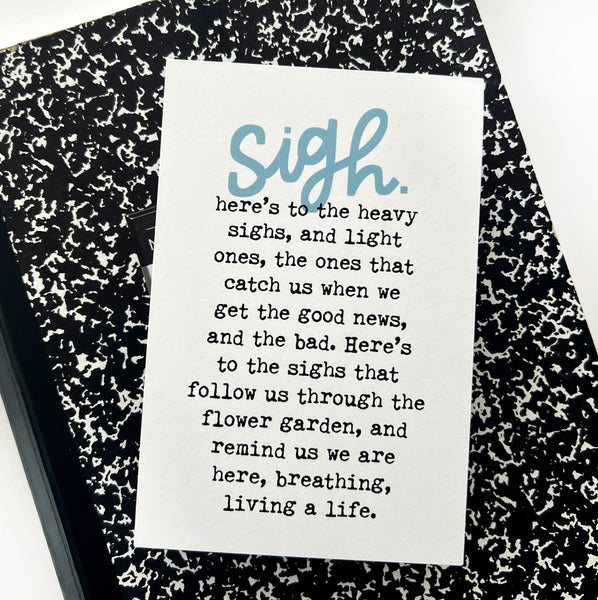 sigh.
here's to the heavy
sighs, and light
ones, the ones that
catch us when we
get the good news,
and the bad. Here's
to the sighs that
follow us through the
flower garden, and
remind us we are
here, breathing,
living a life.